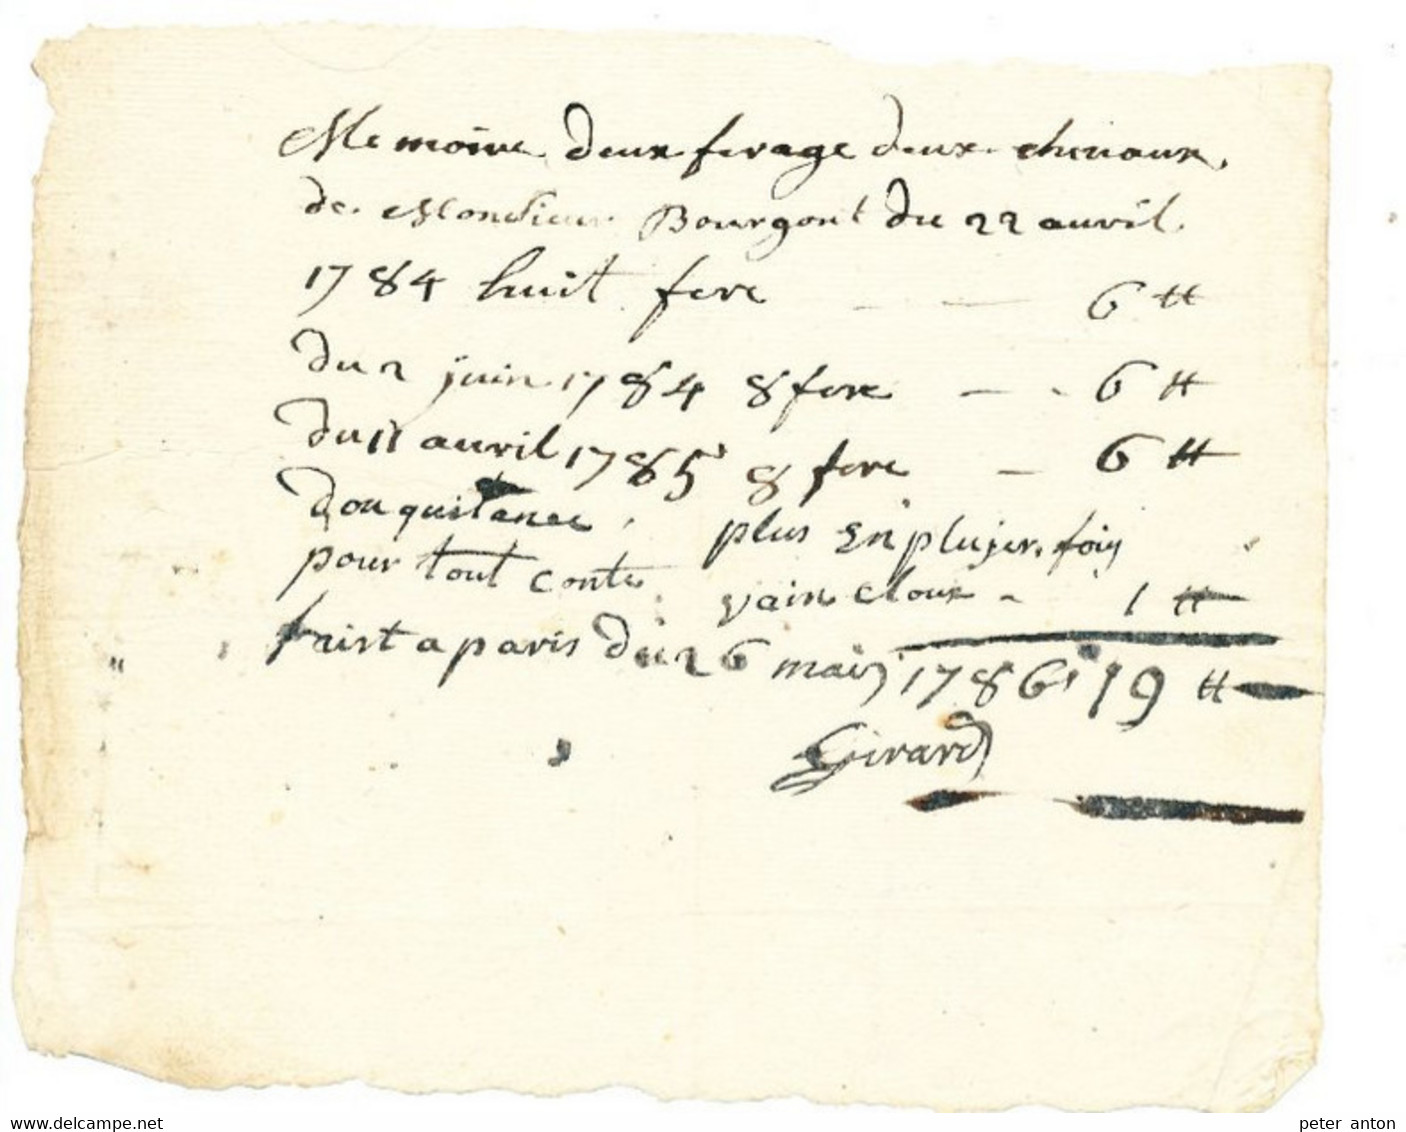 Memoire deux ferage deux chevaux
de Monsieur Bourgont du 22 auvril
1784 huit fere — — 6 ₶
du 2 juin 1784 8 fere — - 6 ₶
du 11 auvril 1785 8 fere — 6 ₶
don quitance, plus en plujer fois
pour tout conte vain cloux - 1 ₶
faist a paris du 26 mais 1786 19 ₶
Girard
delcampe.net
peter anton